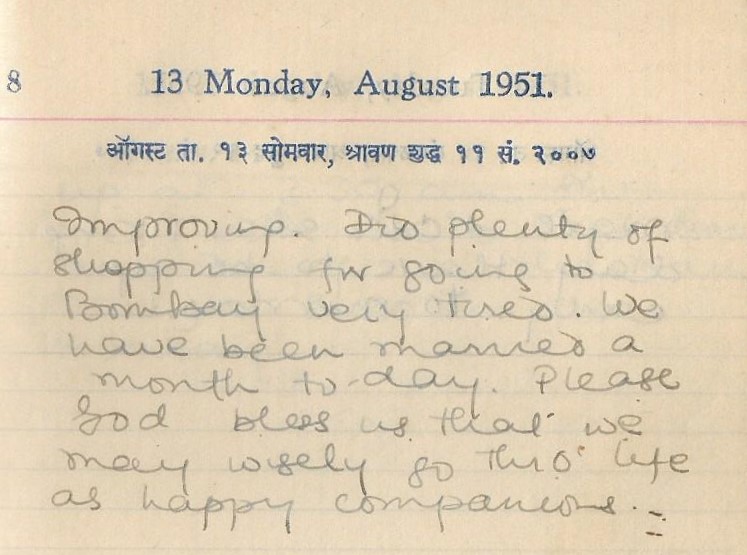 8 13 Monday, August 1951.
ऑगस्ट ता. १३ सोमवार, श्रावण शुद्ध ११ सं. २००७
Improving. Did plenty of
shopping for going to
Bombay very tired. We
have been married a
month to-day. Please
God bless us that we
may wisely go thro' life
as happy companions.